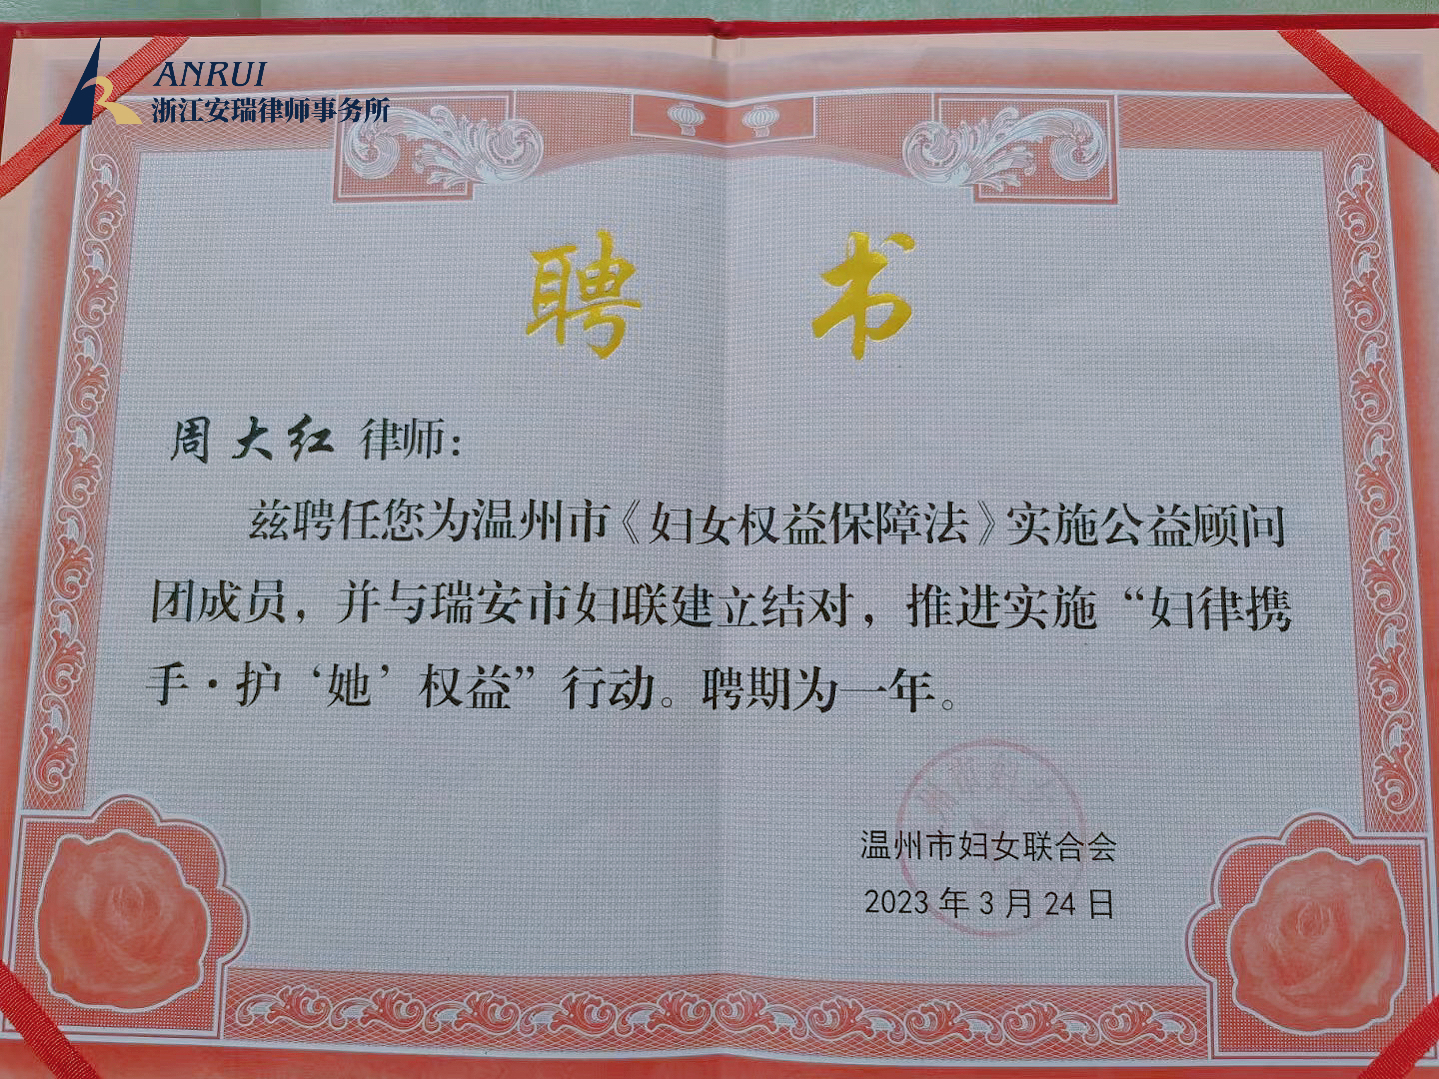 ANRUI
浙江安瑞律师事务所
聘书
周大红 律师：
兹聘任您为温州市《妇女权益保障法》实施公益顾问
团成员，并与瑞安市妇联建立结对，推进实施“妇律携
手·护‘她’权益”行动。聘期为一年。
温州市妇女联合会
2023 年 3 月 24 日